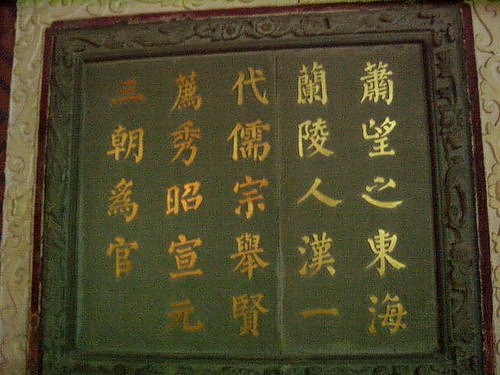 蕭望之東海
蘭陵人漢一
代儒宗舉賢
薦秀昭宣元
三朝為官